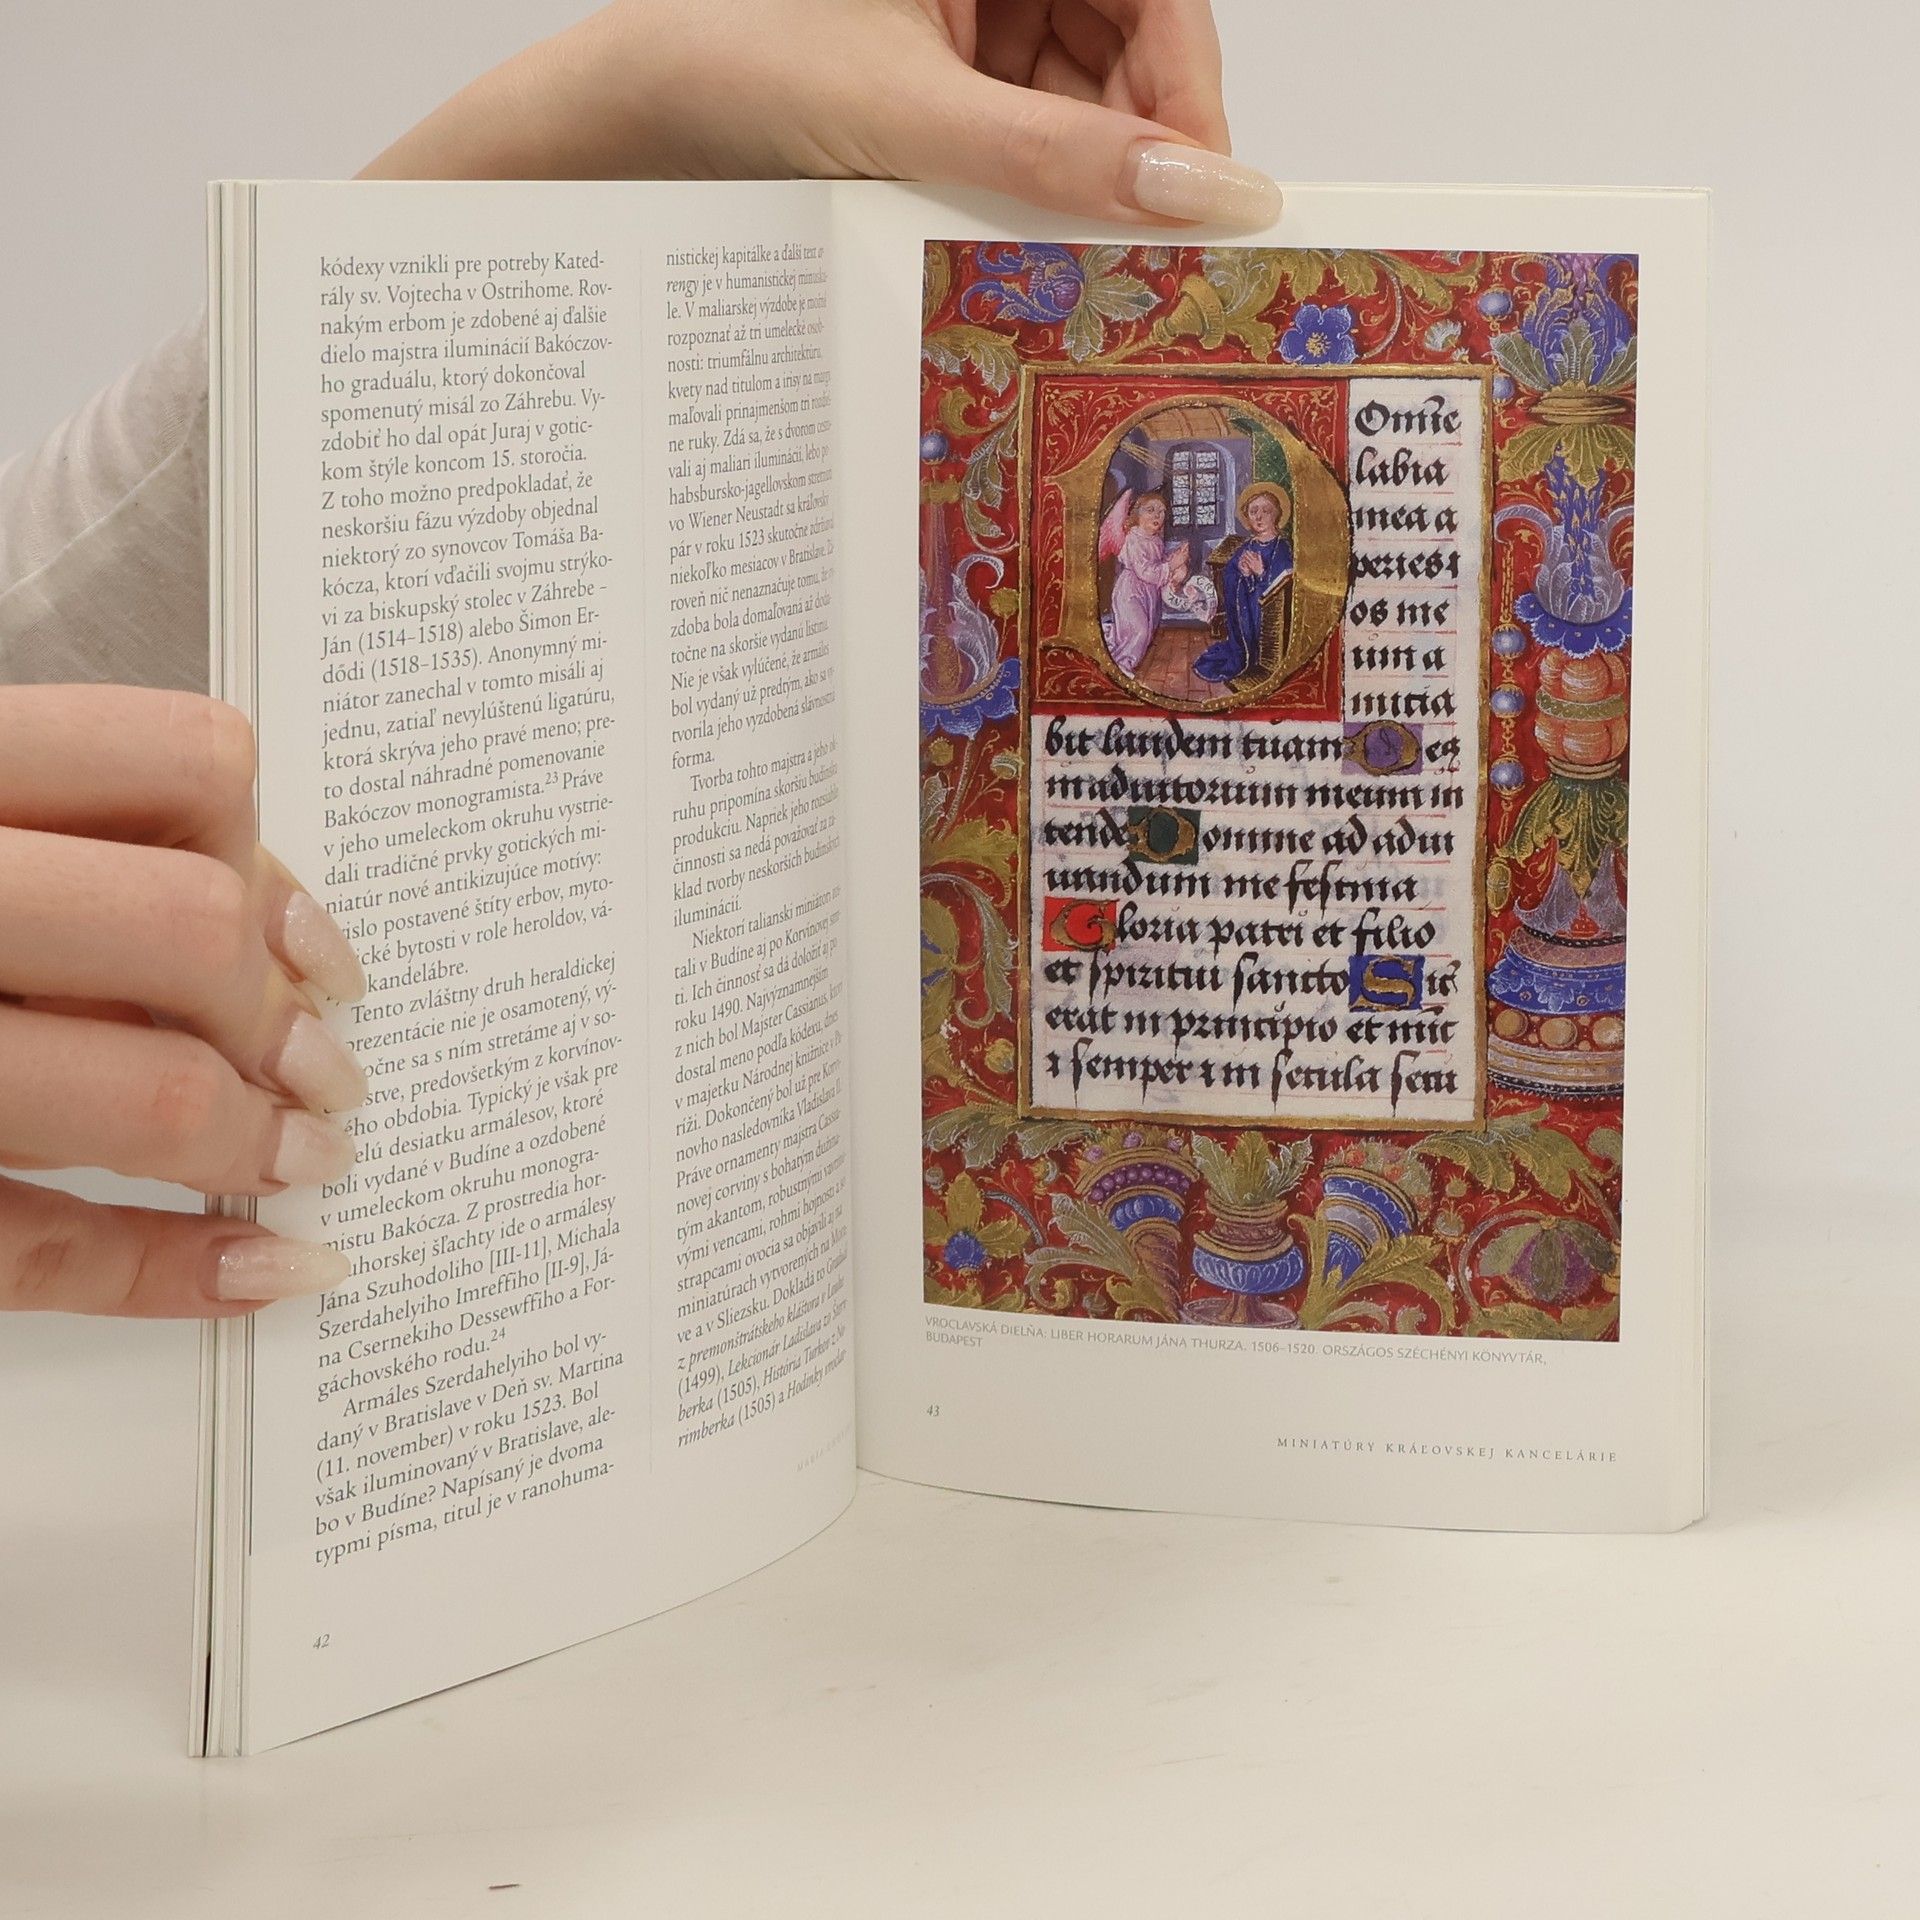 kódexy vznikli pre potreby Kated-
rály sv. Vojtecha v Ostrihome. Rov-
nakým erbom je zdobené aj ďalšie
dielo majstra iluminácií Bakóczov-
ho graduálu, ktorý dokončoval
spomenutý misál zo Záhrebu. Vy-
zdobiť ho dal opát Juraj v gotic-
kom štýle koncom 15. storočia.
Z toho možno predpokladať, že
neskoršiu fázu výzdoby objednal
niektorý zo synovcov Tomáša Ba-
kócza, ktorí vďačili svojmu strýko-
vi za biskupský stolec v Záhrebe –
Ján (1514–1518) alebo Šimon Er-
dődi (1518–1535). Anonymný mi-
niátor zanechal v tomto misáli aj
jednu, zatiaľ nevylúštenú ligatúru,
ktorá skrýva jeho pravé meno; pre-
to dostal náhradné pomenovanie
Bakóczov monogramista.23 Práve
v jeho umeleckom okruhu vystrie-
dali tradičné prvky gotických mi-
niatúr nové antikizujúce motívy:
postavené štíty erbov, myto-
bytosti v role heroldov, vá-
kandelábre.
Tento zvláštny druh heraldickej
nie je osamotený, vý-
sa s ním stretáme aj v so-
predovšetkým z korvínov-
obdobia. Typický je však pre
desiatku armálesov, ktoré
boli vydané v Budíne a ozdobené
v umeleckom okruhu monogra-
mistu Bakócza. Z prostredia hor-
šľachty ide o armálesy
Jána Szuhodoliho [III-11], Michala
Szerdahelyiho Imreffiho [II-9], Já-
na Csernekiho Dessewffiho a For-
gáchovského rodu.24
Armáles Szerdahelyiho bol vy-
daný v Bratislave v Deň sv. Martina
(11. november) v roku 1523. Bol
však iluminovaný v Bratislave, ale-
bo v Budíne? Napísaný je dvoma
typmi písma, titul je v ranohuma-
42
nistickej kapitálke a ďalší text a-
rengy je v humanistickej minusku-
le. V maliarskej výzdobe je možné
rozpoznať až tri umelecké osob-
nosti: triumfálnu architektúru,
kvety nad titulom a irisy na
maľovali prinajmenšom tri
ne ruky. Zdá sa, že s dvorom cesto-
vali aj maliari iluminácií, lebo po
habsbursko-jagellovskom
vo Wiener Neustadt sa kráľovský
pár v roku 1523 skutočne
niekoľko mesiacov v Bratislave.
roveň nič nenaznačuje tomu, že
zdoba bola domaľovaná až
točne na skoršie vydanú listinu.
Nie je však vylúčené, že armáles
bol vydaný už predtým, ako sa vy-
tvorila jeho vyzdobená slávnostná
forma.
Tvorba tohto majstra a jeho ok-
ruhu pripomína skoršiu budínsku
produkciu. Napriek jeho rozsiahlej
činnosti sa nedá považovať za zá-
klad tvorby neskorších budínskych
iluminácií.
Niektorí talianski miniátori
tali v Budíne aj po Korvínovej smr-
ti. Ich činnosť sa dá doložiť aj po
roku 1490. Najvýznamnejším
z nich bol Majster Cassianus, ktorý
dostal meno podľa kódexu, dnes
v majetku Národnej knižnice v Pa-
ríži. Dokončený bol už pre Korví-
novho nasledovníka Vladislava II.
Práve ornamenty majstra Cassia-
novej corviny s bohatým
tým akantom, robustnými vavríno-
vými vencami, rohmi hojnosti a so
strapcami ovocia sa objavili aj na
miniatúrach vytvorených na Mora-
ve a v Sliezsku. Dokladá to Graduál
z premonštrátskeho kláštora v Louke
(1499), Lekcionár Ladislava zo Stern-
berka (1505), História Turkov z No-
rimberka (1505) a Hodinky vroclav-
Om̄e
labia
mea a
peries ⁊
os me
um a
nuncia
bit laudem tuam Des
in adiutorium meum in
tende Domine ad adiu
uandum me festina
Gloria patri et filio
et spiritui sancto Sic̄
erat in principio et nūc
⁊ semper ⁊ in secula secu
VROCLAVSKÁ DIELŇA: LIBER HORARUM JÁNA THURZA. 1506–1520. ORSZÁGOS SZÉCHÉNYI KÖNYVTÁR,
BUDAPEST
43
MINIATÚRY KRÁĽOVSKEJ KANCELÁRIE